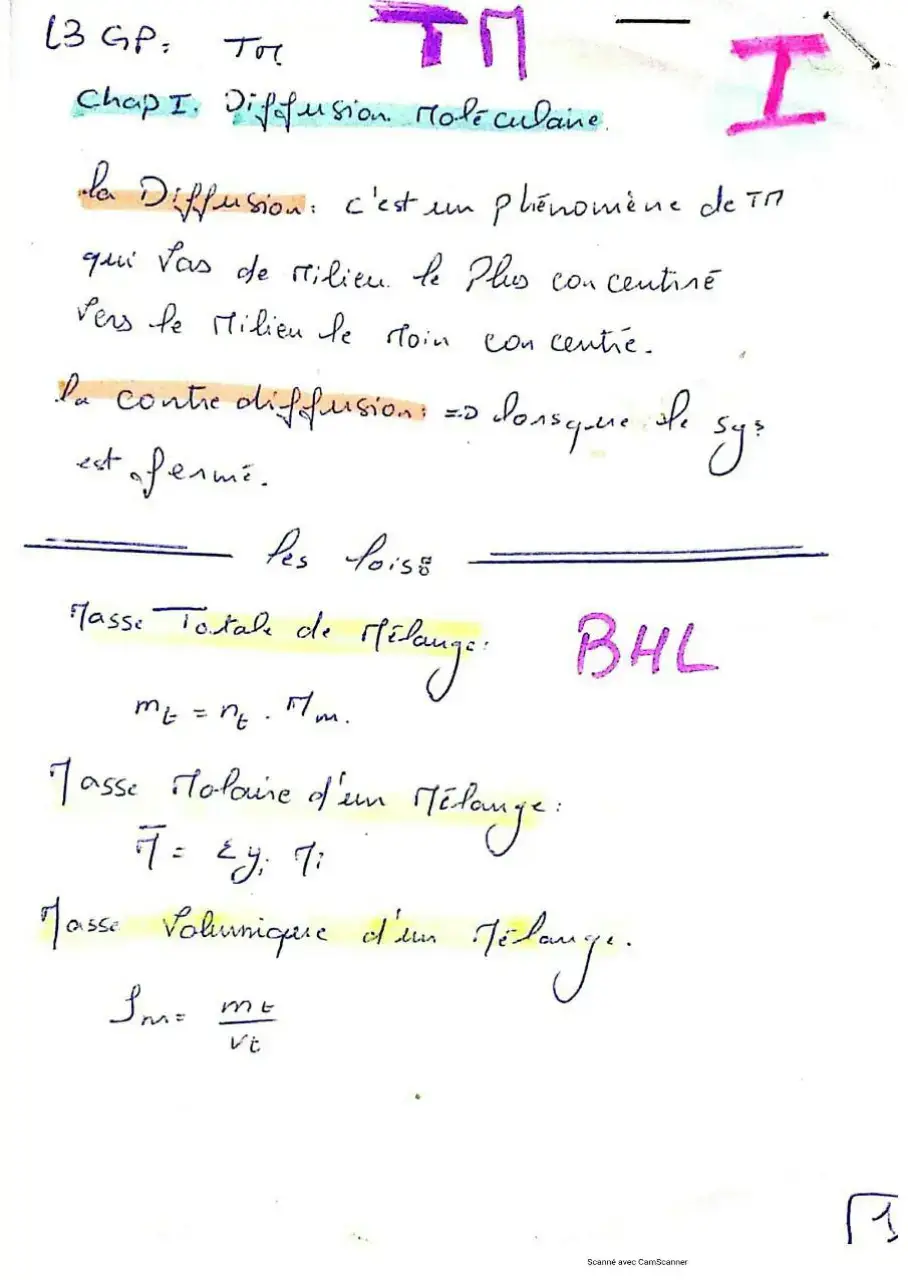 L3 GP: TM TM I
Chap I. Diffusion Moléculaire.
la Diffusion: c'est un phénomène de TM
qui vas de Milieu le Plus concentré
vers le Milieu le Moin concentré.
la contre diffusion: => lorsque le sys
est fermé.
les lois:
Masse Totale de Mélange:
BHL
mt = nt . Mm.
Masse Molaire d'un Mélange:
M̅ = Σyi Mi
Masse Volumique d'un Mélange.
ρm = mt / vt
1
Scanné avec CamScanner